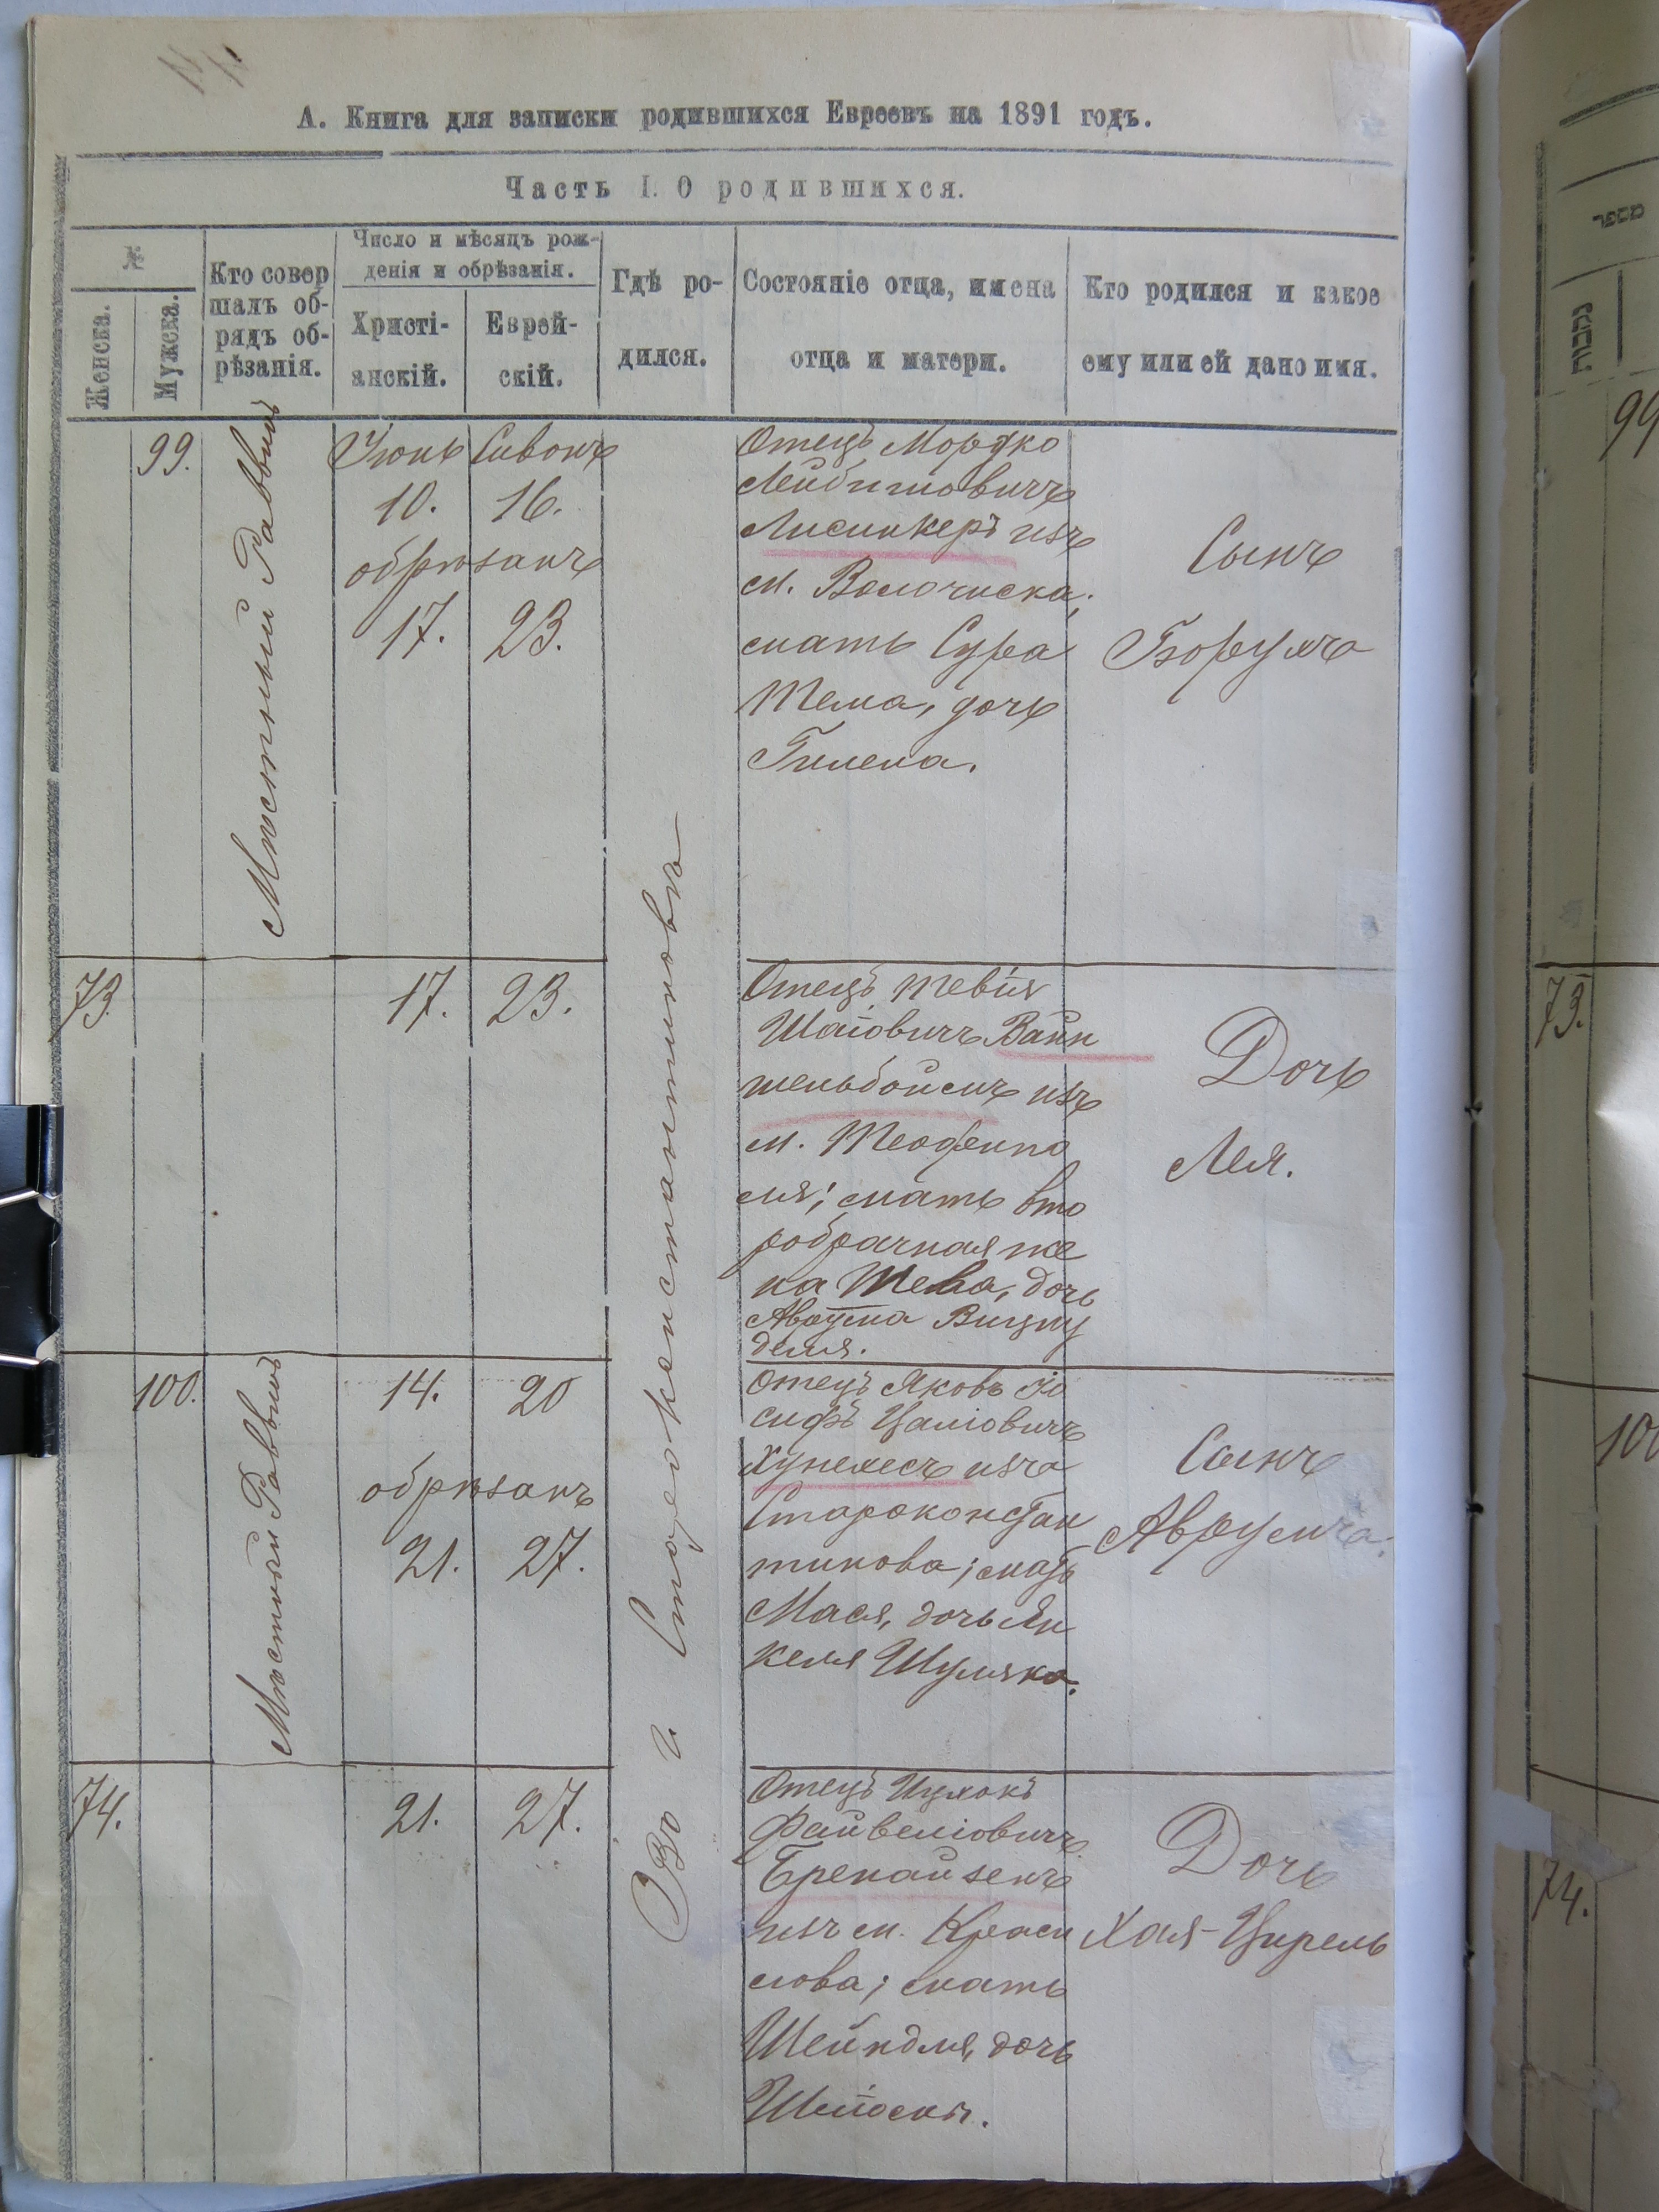 А. Книга для записки родившихся Евреевъ на 1891 годъ.
Часть I. О родившихся.
№
Женска.
Мужска.
Кто совер
шалъ об-
рядъ об-
рѣзанія.
Число и мѣсяцъ рож-
денія и обрѣзанія.
Христі-
анскій.
Еврей-
скій.
Гдѣ ро-
дился.
Состояніе отца, имена
отца и матери.
Кто родился и какое
ему или ей дано имя.
99.
Мѣстный Раввинъ
Іюнь Сивонъ
10. 16.
обрѣзанъ
17. 23.
Въ г. Староконстантиновѣ
Отецъ Мордко
Лейбишовичъ
Лисинкеръ изъ
м. Волочиска;
мать Сура
Тема, дочь
Гилела.
Сынъ
Борухъ
73.
17. 23.
Отецъ Тевія
Шаіовичъ Вайн
тельбоймъ изъ
м. Теофипо
ля; мать вто
робрачная же
на Шева, дочь
Аврума Вицну
деля.
Дочь
Лея.
100.
Мѣстный Раввинъ
14. 20
обрѣзанъ
21. 27.
Отецъ Яковъ Іо
сифъ Цаліовичъ
Хунелесъ изъ
Староконстан
тинова; мать
Мася, дочь Ян
келя Шуляка.
Сынъ
Аврумъ.
74.
21. 27.
Отецъ Ицхокъ
Файвеліовичъ
Бренайзенъ
изъ м. Краси
лова; мать
Шейндля, дочь
Шліомы.
Дочь
Хая-Цирель
נקבות
99
73.
100
74.